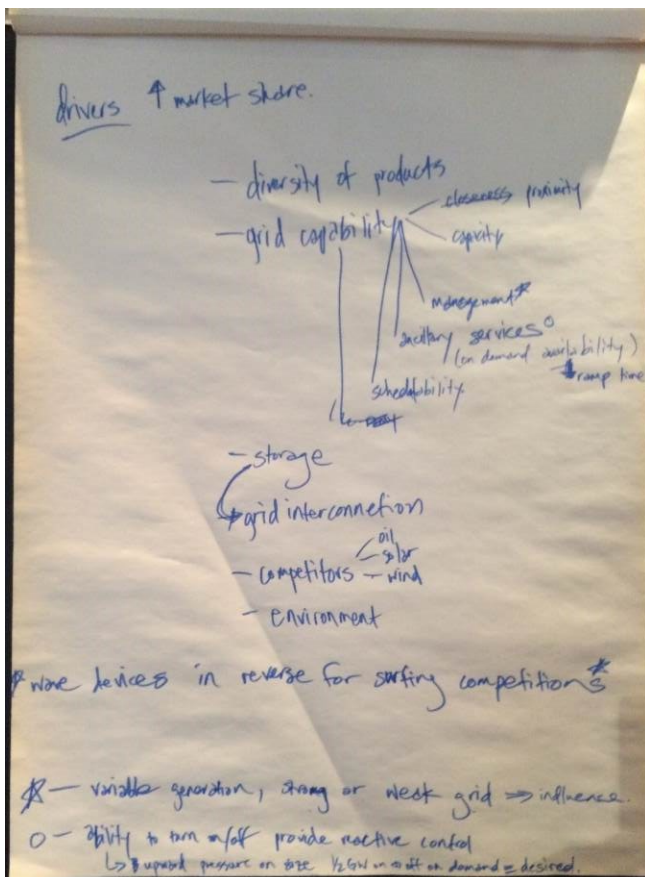 drivers ↑ market share.
- diversity of products
- grid capability
closeness proximity
capacity
management*
ancillary services○
(on demand availability)
ramp time
schedulability
- storage
→ grid interconnetion
- competitors
oil
solar
wind
- environment
* wave devices in reverse for surfing competitions*
* - variable generation, strong or weak grid => influence.
○ - ability to turn on/off provide reactive control
↳ upward pressure on size 1/2 GW on or off on demand = desired.